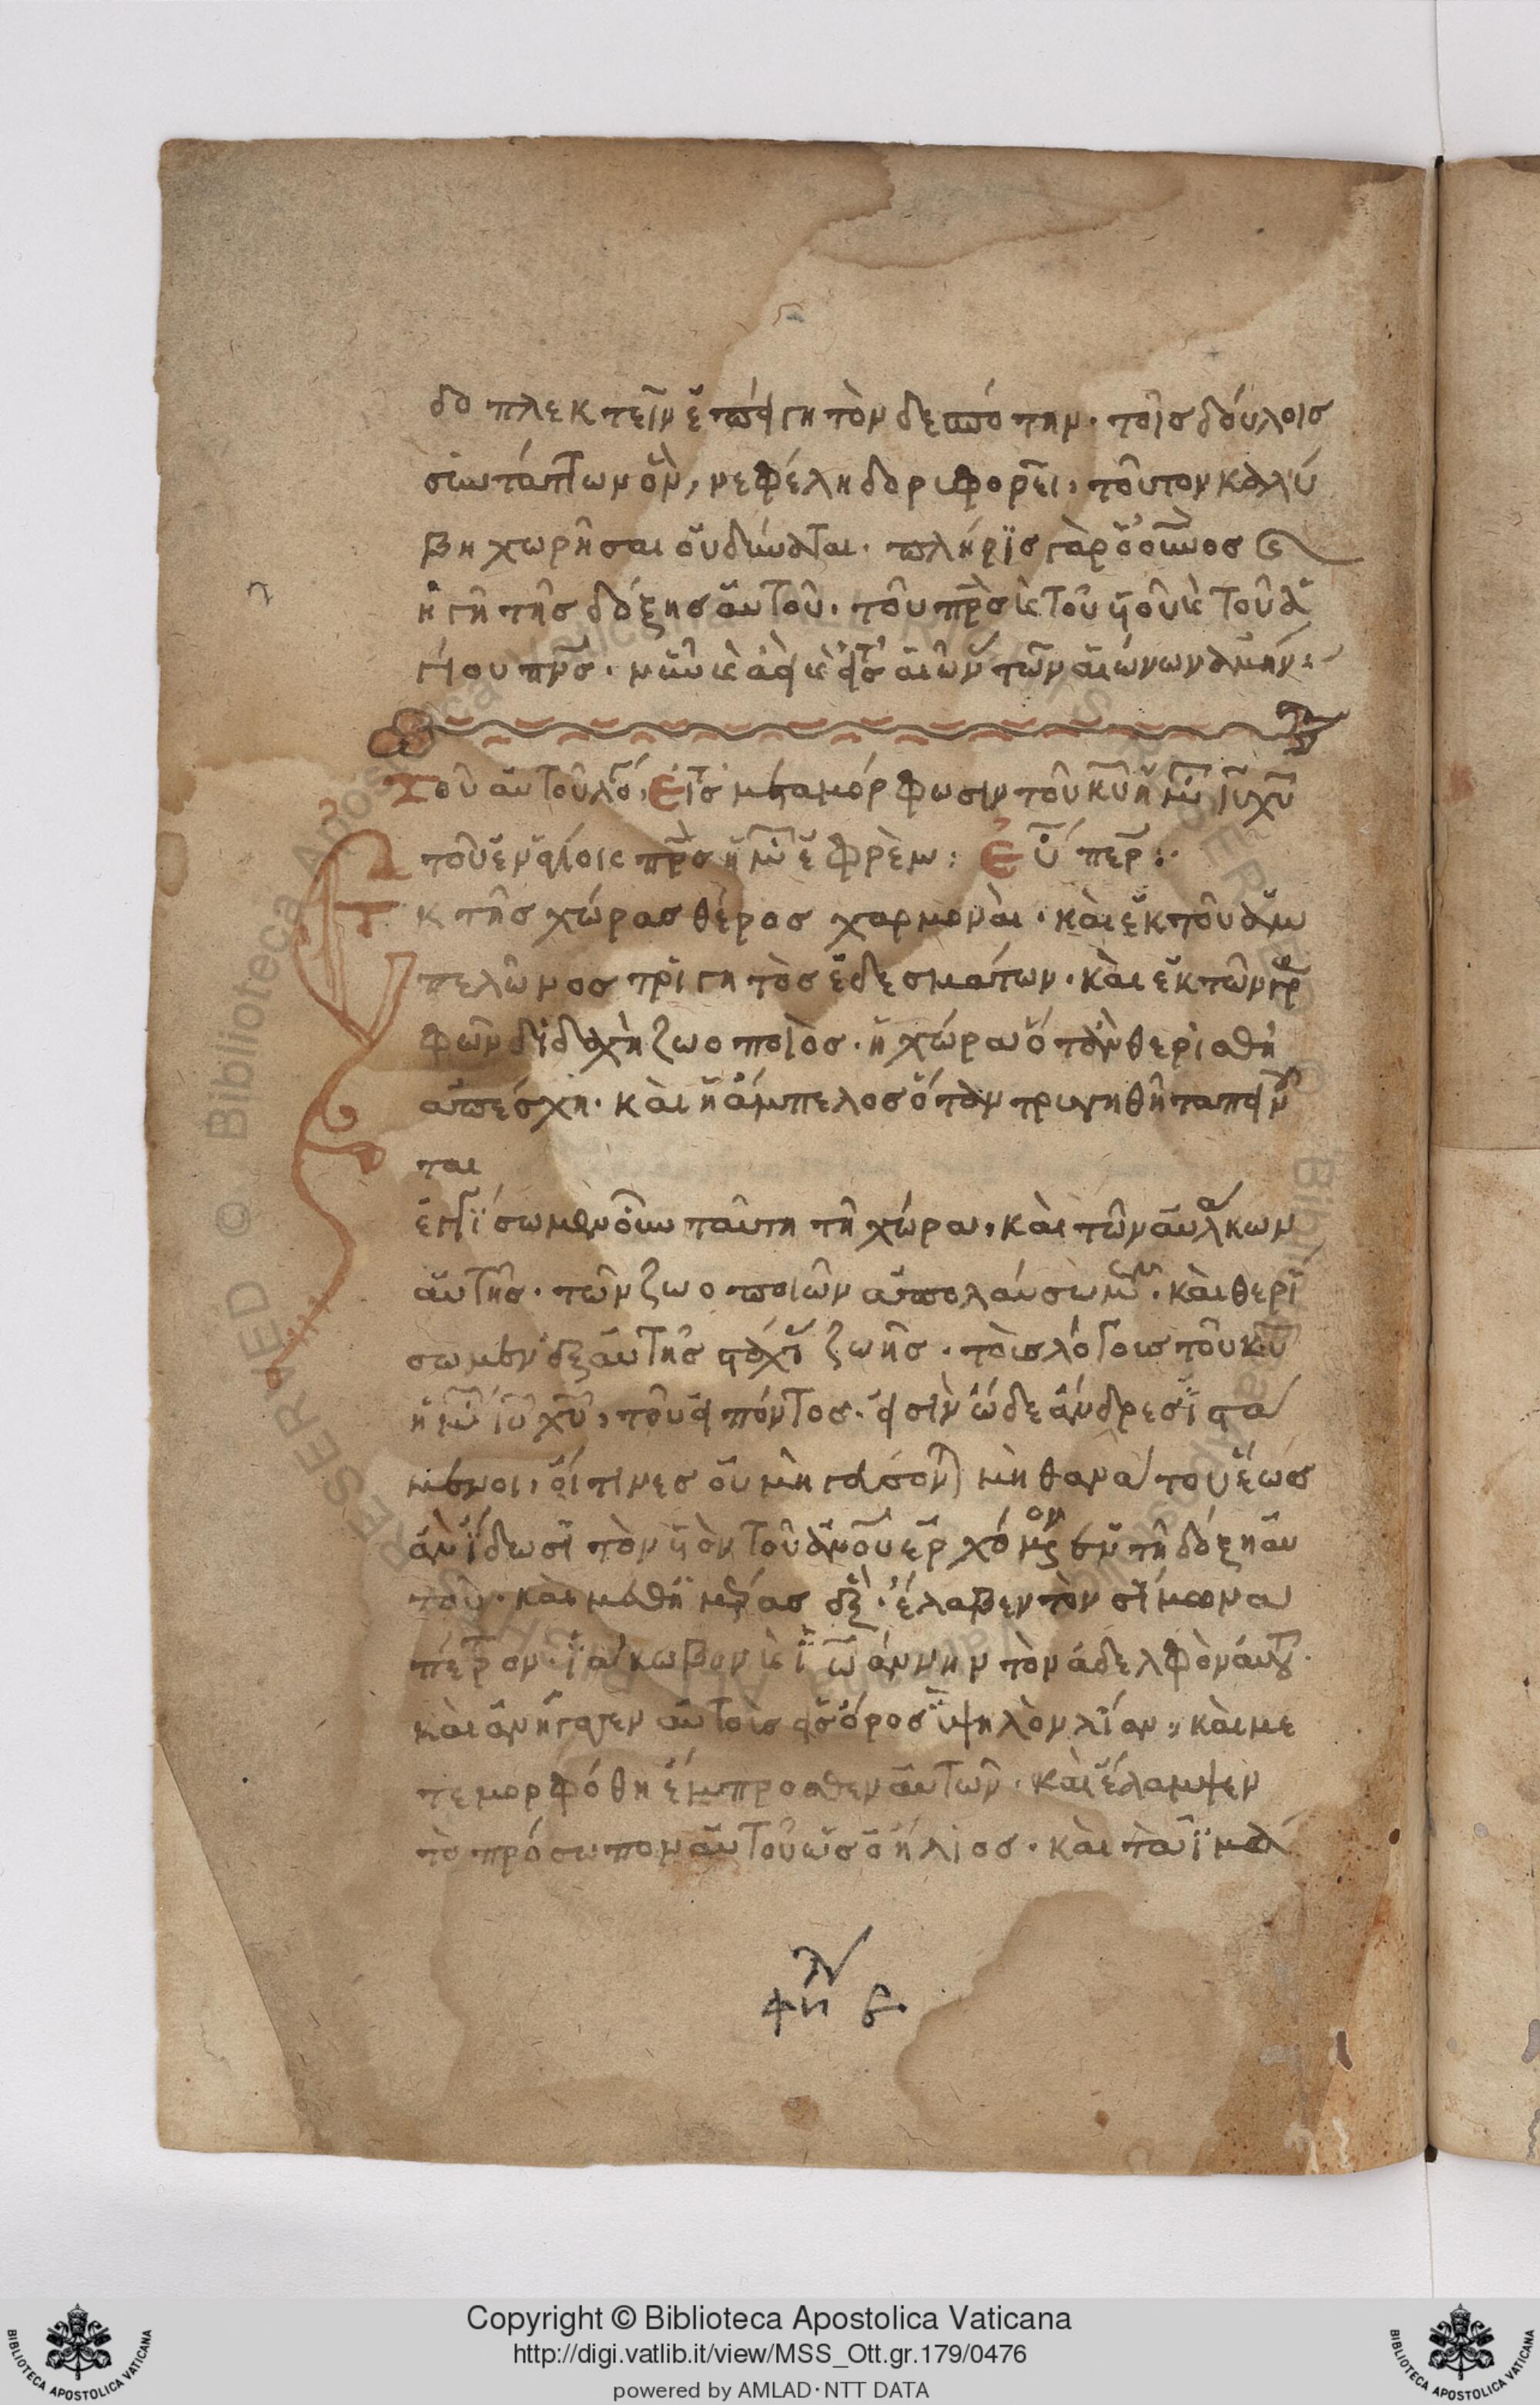 δοπλεκτεῖν ἐπάγη τὸν δεσπότην· τοῖς δούλοις
νεφέλη δοριφορεῖ, τοῦτον καλύ
βη χωρῆσαι οὐ δύναται· πλήρϊς γὰρ ὁ οὐνος
ἡ γῆ τῆς δόξης αὐτοῦ· τοῦ πρς κ τοῦ ὑοῦ κ τοῦ ἁ
γίου πνς· νῦν κ ἀεὶ κ εἰς αἰῶν τῶν αἰώνων ἀμήν:
Τοῦ αὐτοῦ λό, Εἰς μεταμόρφωσιν τοῦ κυ ἡμῶ ιυ χυ
τοῦ ἐν ἁγίοις πρς ἡμῶ ἐφρὲμ: Εὐ περ:
κ τῆς χώρας θέρος χαρμοναὶ· καὶ ἐκ τοῦ ἀμ
πελῶνος τρίγητος ἐδεσμάτων· καὶ ἐκ τῶν γρα
φῶν διδαχὴ ζωοποιὸς· ἡ χώρα ὅταν θερισθῆ
ἀπέσχη· καὶ ἡ ἄμπελος ὅταν τρυγηθῆ ταπειν
ται
οὖν ταύτη τῆ χώρα, καὶ τῶν αὐλάκων
αὐτῆς· τῶν ζωοποιῶν ἀπολαύσωμεν· καὶ θερί
σωμεν ἐξ αὐτῆς ζωῆς· τοῖς λόγοις τοῦ κυ
ἡμῶ ιυ χυ, τοῦ εἰπόντος· εἰσὶν ὧδε ἄνδρες ἱστα
μενοι, οἵτινες οὐ μὴ γεύσον) μὴ θανάτου ἕως
ἂν ἴδωσι τὸν ὑὸν τοῦ ἀνου ἐρχόμενον ἐν τῆ δόξη αὐ
τοῦ· καὶ μεθ ἡμέρας ἓξ· ἔλαβεν τὸν σίμωνα
πέτρον· ἰάκωβον κ ἰωάννην τὸν ἀδελφὸν αὐτοῦ·
καὶ ἀνήγαγεν αὐτοῖς εἰς ὄρος ὑψηλὸν λίαν, καὶ με
τεμορφόθη ἔμπροσθεν αὐτῶν· καὶ ἔλαμψεν
τὸ πρόσωπον αὐτοῦ ὡς ὁ ἥλιος· καὶ τὰ ἱμά
Copyright © Biblioteca Apostolica Vaticana
http://digi.vatlib.it/view/MSS_Ott.gr.179/0476
powered by AMLAD·NTT DATA